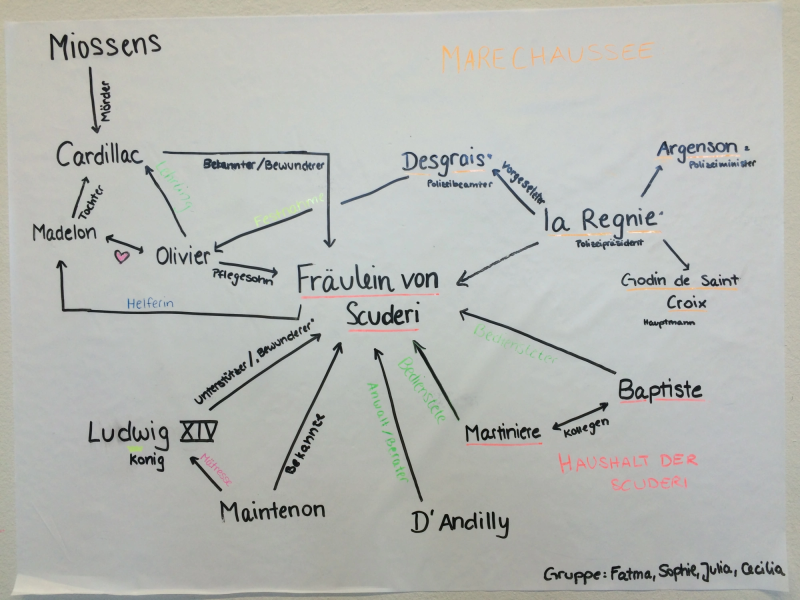 Miossens
MARECHAUSSEE
Mörder
Cardillac
Bekannter/Bewunderer
Desgrais
Polizeibeamter
Vorgesetzter
Argenson
Polizeiminister
Lehrling
Tochter
Festnahme
la Regnie
Polizeipräsident
Madelon
Olivier
Pflegesohn
Fräulein von
Scuderi
Godin de Saint
Croix
Hauptmann
Helferin
Unterstützer/"Bewunderer"
Bediensteter
Bedienstete
Baptiste
Anwalt/Berater
Bekannte
Martiniere
Kollegen
Ludwig XIV
König
Mätresse
HAUSHALT DER
SCUDERI
Maintenon
D'Andilly
Gruppe: Fatma, Sophie, Julia, Cecilia